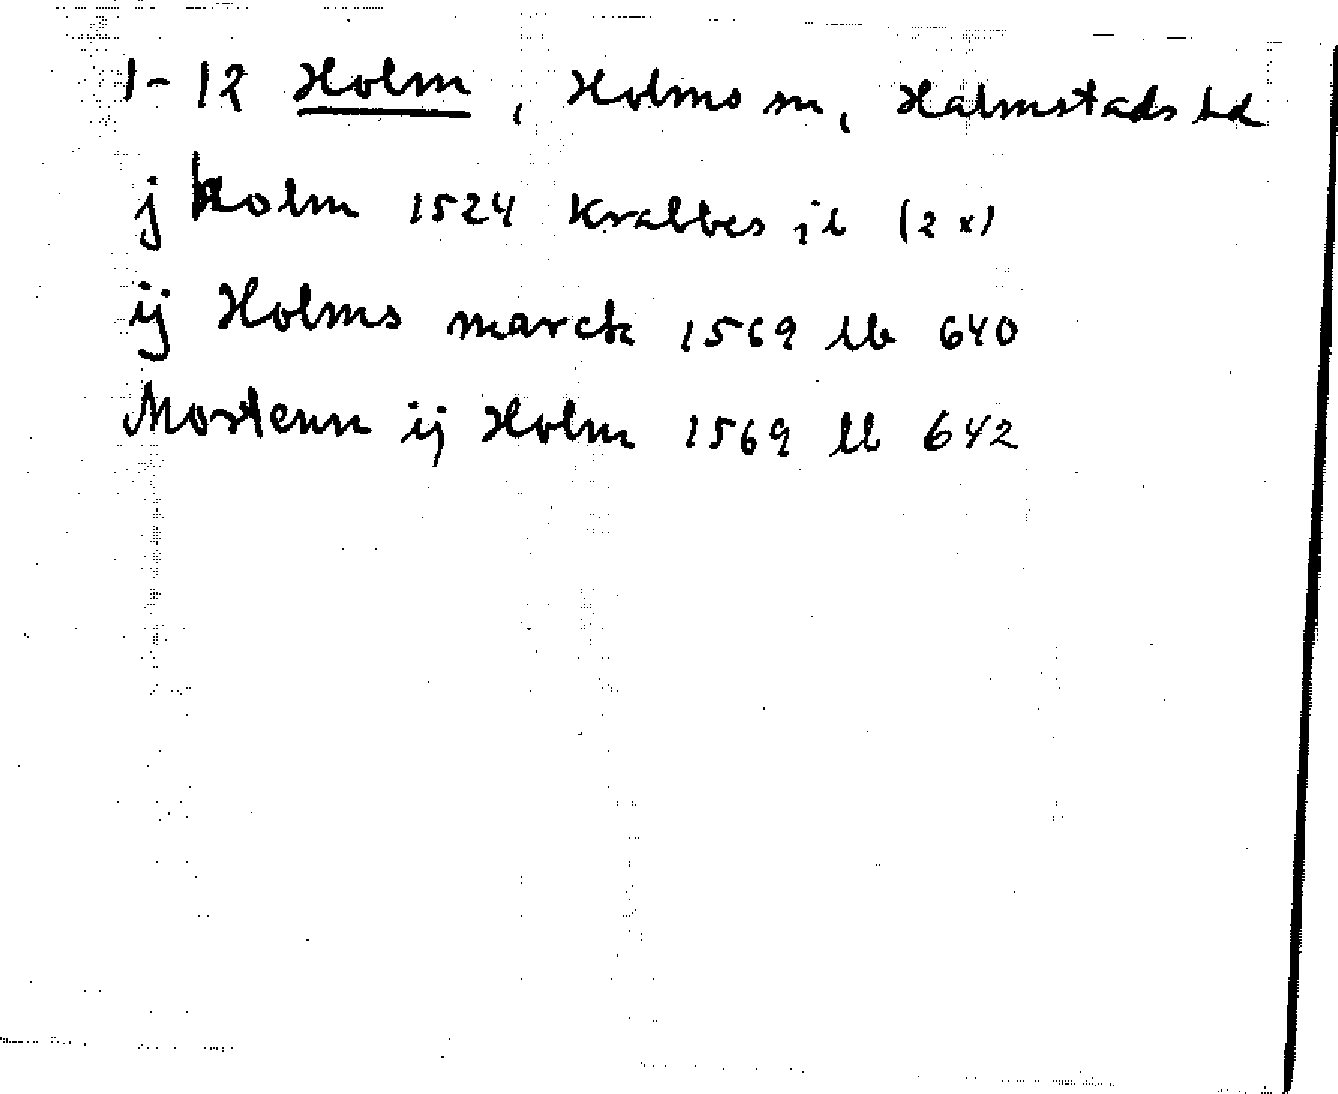 1-12 Holm, Holms sn, Halmstads hd
j holm 1524 Krabbes jb (2 x)
ij Holms marck 1569 lb 640
Mortenn ij Holm 1569 lb 642